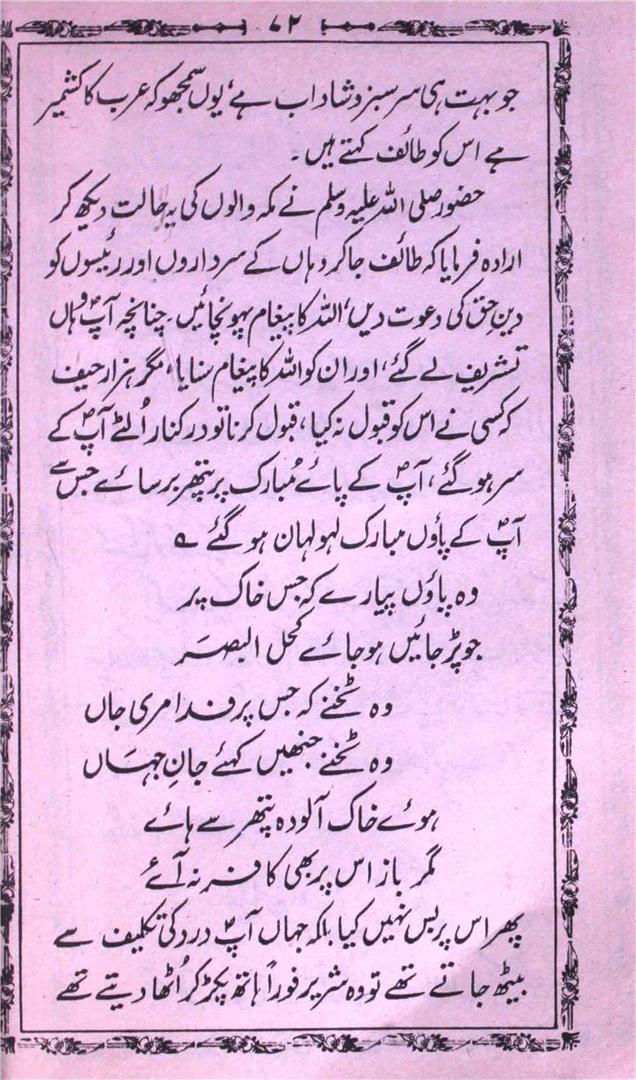 ۷۲
جو بہت ہی سرسبز و شاداب ہے، یوں سمجھو کہ عرب کا کشمیر
ہے اس کو طائف کہتے ہیں۔
حضور صلی اللہ علیہ وسلم نے مکہ والوں کی یہ حالت دیکھ کر
ارادہ فرمایا کہ طائف جا کر وہاں کے سرداروں اور رئیسوں کو
دینِ حق کی دعوت دیں، اللہ کا پیغام پہونچائیں۔ چنانچہ آپؐ وہاں
تشریف لے گئے، اور ان کو اللہ کا پیغام سنایا، مگر ہزار حیف
کہ کسی نے اس کو قبول نہ کیا، قبول کرنا تو درکنار اُلٹے آپؐ کے
سر ہو گئے، آپؐ کے پائے مُبارک پر پتھر برسائے جس سے
آپؐ کے پاؤں مبارک لہولہان ہو گئے ؎
وہ پاؤں پیارے کہ جس خاک پر
جو پڑ جائیں ہو جائے کحل البصر
وہ ٹخنے کہ جس پر فدا مری جاں
وہ ٹخنے جنھیں کہئے جانِ جہاں
ہوئے خاک آلودہ پتھر سے ہائے
مگر باز اس پر بھی کافر نہ آئے
پھر اس پر بس نہیں کیا بلکہ جہاں آپؐ درد کی تکلیف سے
بیٹھ جاتے تھے تو وہ شریر فوراً ہاتھ پکڑ کر اُٹھا دیتے تھے